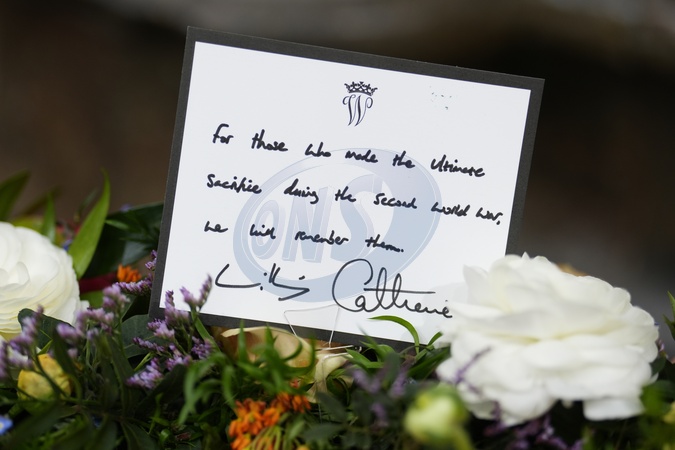 W
For those who made the ultimate
Sacrifice during the second world war,
we will remember them.
William Catherine
ONS